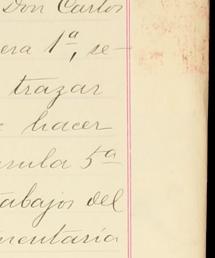 Don Carlos
era 1ª, se-
trazar
hacer
sula 5ª
abajos del
mentaria